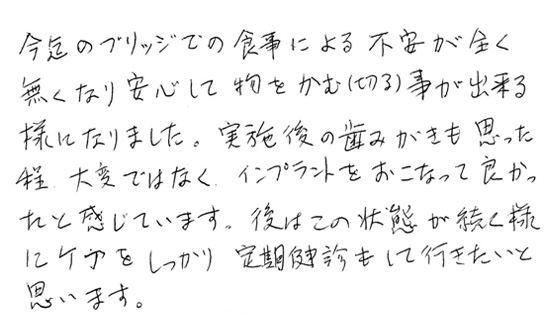 今迄のブリッジでの食事による不安が全く
無くなり安心して物をかむ(切る)事が出来る
様になりました。実施後の歯みがきも思った
程、大変ではなく、インプラントをおこなって良かっ
たと感じています。後はこの状態が続く様
にケアをしっかり定期健診もして行きたいと
思います。